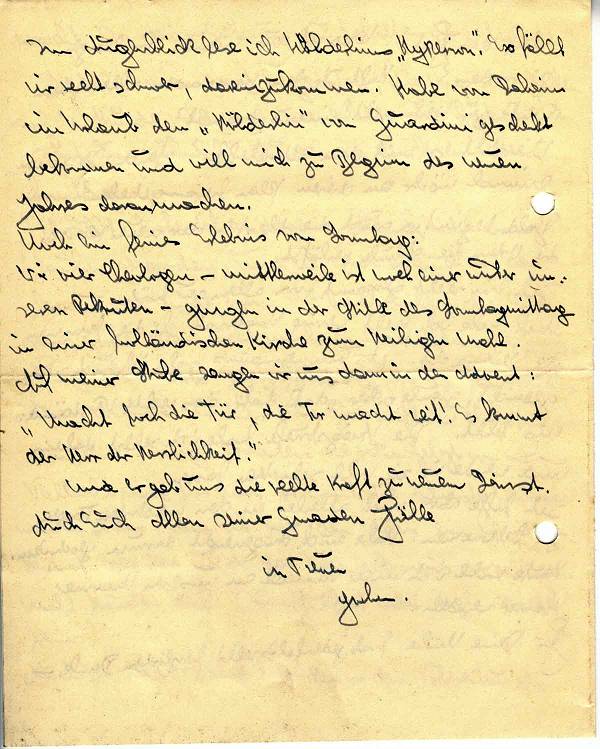 Im Augenblick lese ich Hölderlins „Hyperion". Es fällt
mir recht schwer, dareinzukommen. Habe von Daheim
im Urlaub den „Hölderlin" von Guardini geschenkt
bekommen und will mich zu Beginn des neuen
Jahres daranmachen.
Noch ein feines Erlebnis von Sonntag:
Wir vier Theologen – mittlerweile ist noch einer unter un-
seren Rekruten – gingen in der Stille des Sonntagmittag
in einer Jütländischen Kirche zum Heiligen Mahl.
Auf meiner Stube sangen wir uns dann in den Advent:
„Macht hoch die Tür, die Tor macht weit! Es kommt
der Herr der Herrlichkeit."
Und er geb uns die rechte Kraft zu neuem Dienst.
Auch Euch Allen seiner Gnaden Fülle
in Treuen